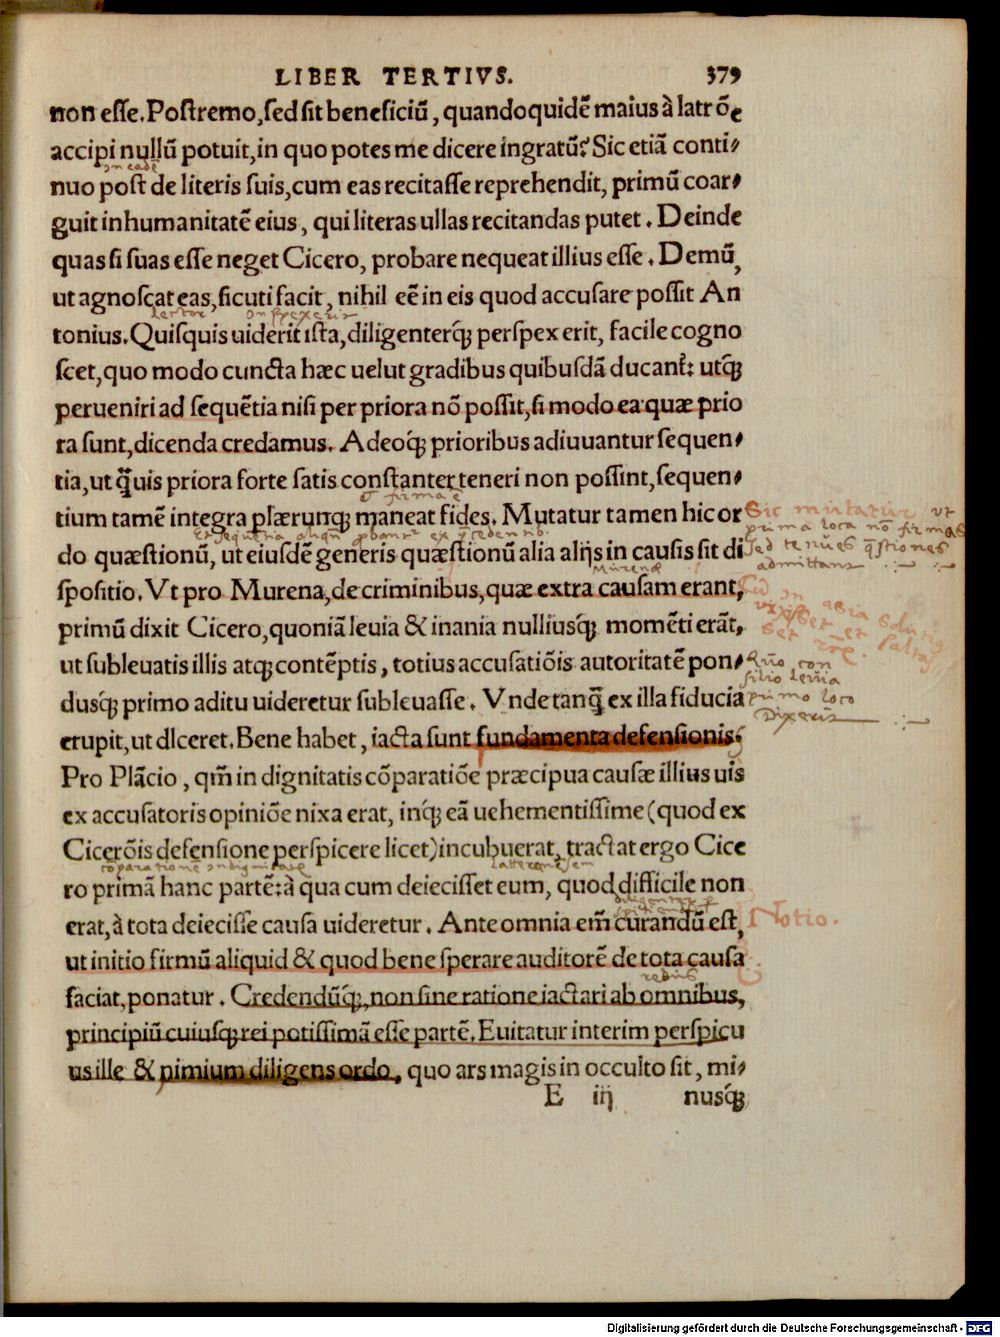 LIBER TERTIVS. 379
non esse. Postremo, sed sit beneficiū, quandoquidē maius à latrōe
accipi nullū potuit, in quo potes me dicere ingratū? Sic etiā conti⸗
nuo post de literis suis, cum eas recitasse reprehendit, primū coar⸗
guit inhumanitatē eius, qui literas ullas recitandas putet. Deinde
quasi suas esse neget Cicero, probare nequeat illius esse. Demū,
ut agnoscat eas, sicuti facit, nihil eē in eis quod accusare possit An
lector
tonius. Quisquis uiderit ista, diligenterq́; perspexerit, facile cogno
scet, quo modo cuncta hæc uelut gradibus quibusdā ducant᷑: utq́;
perueniri ad sequētia nisi per priora nō possit, si modo ea quæ prio
ra sunt, dicenda credamus. Adeoq́; prioribus adiuuantur sequen⸗
tia, ut q̄uis priora forte satis constanter teneri non possint, sequen⸗
tium tamē integra plærunq; maneat fides. Mutatur tamen hic or
Sic mutatur ut
prima loca nō firmas
sed tenues q̄stiones
admittant
do quæstionū, ut eiusdē generis quæstionū alia alijs in causis sit di
Murena
spositio. Vt pro Murena, de criminibus, quæ extra causam erant,
primū dixit Cicero, quoniā leuia & inania nulliusq́; momēti erāt,
ut subleuatis illis atq; contēptis, totius accusatiōis autoritatē pon⸗
con
silio leuia
primo loco
Dixerit
dusq́; primo aditu uideretur subleuasse. Vnde tanq̄ ex illa fiducia
erupit, ut dlceret. Bene habet, iacta sunt fundamenta defensionis.
Pro Plācio, qm̄ in dignitatis cōparatiōe præcipua causæ illius uis
ex accusatoris opiniōe nixa erat, inq́; eā uehementissime (quod ex
Cicerōis defensione perspicere licet) incubuerat, tractat ergo Cice
ro primā hanc partē: à qua cum deiecisset eum, quod difficile non
erat, à tota deiecisse causa uideretur. Ante omnia em̄ curandū est,
Notio.
ut initio firmū aliquid & quod bene sperare auditorē de tota causa
rebus
faciat, ponatur. Credendūq́;, non sine ratione iactari ab omnibus,
principiū cuiusq; rei potissimā esse partē. Euitatur interim perspicu
us ille & nimium diligens ordo, quo ars magis in occulto sit, mi⸗
E iij nusq́;
Digitalisierung gefördert durch die Deutsche Forschungsgemeinschaft - DFG